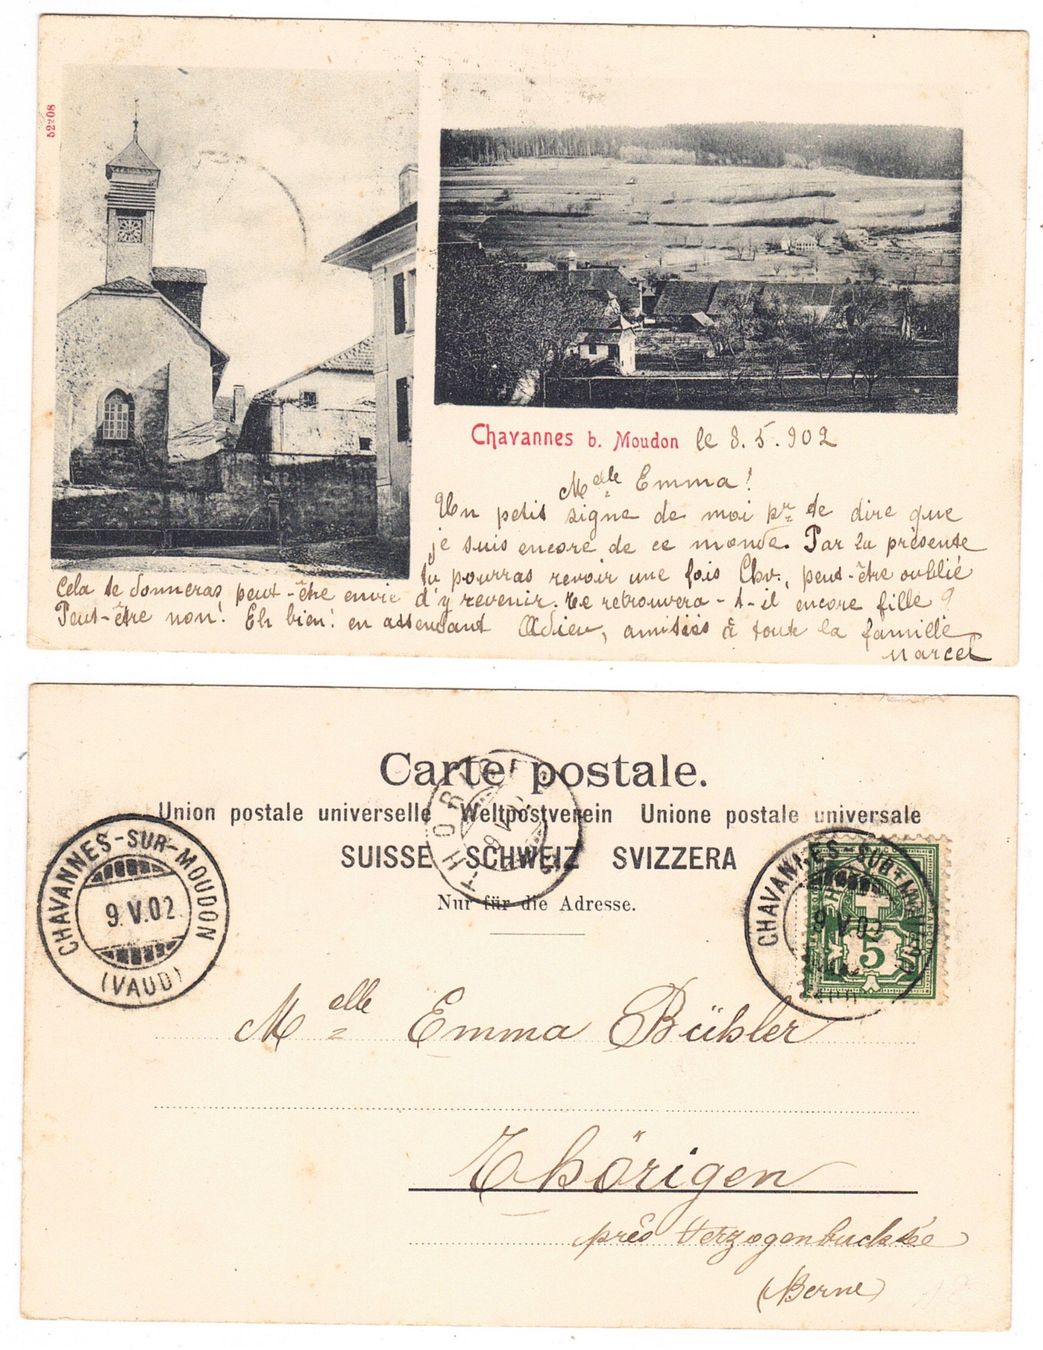 52208
Chavannes b. Moudon le 8.5.902
Melle Emma!
Un petit signe de moi pr te dire que
je suis encore de ce monde. Par la présente
tu pourras revoir une fois Chv., peut-être oublié
Cela te donneras peut-être envie d'y revenir. Te retrouvera-t-il encore fille?
Peut-être non! Eh bien! en attendant Adieu, amitiés à toute la famille
Marcel
Carte postale.
Union postale universelle Weltpostverein Unione postale universale
SUISSE SCHWEIZ SVIZZERA
Nur für die Adresse.
CHAVANNES-SUR-MOUDON
9.V.02
(VAUD)
CHAVANNES-SUR-MOUDON
9.V.02
5
Melle Emma Bühler
Thörigen
près Herzogenbuchsée
(Berne)